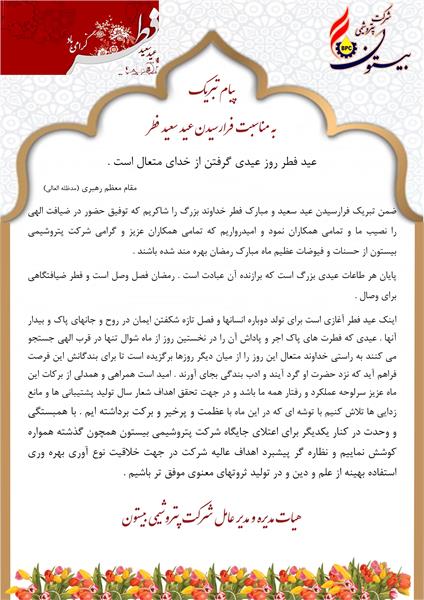 شرکت پتروشیمی
بیستون
BPC
عید سعید
فطر
گرامی باد
پیام تبریک
به مناسبت فرارسیدن عید سعید فطر
عید فطر روز عیدی گرفتن از خدای متعال است .
مقام معظم رهبری (مدظله العالی)
ضمن تبریک فرارسیدن عید سعید و مبارک فطر خداوند بزرگ را شاکریم که توفیق حضور در ضیافت الهی
را نصیب ما و تمامی همکاران نمود و امیدرواریم که تمامی همکاران عزیز و گرامی شرکت پتروشیمی
بیستون از حسنات و فیوضات عظیم ماه مبارک رمضان بهره مند شده باشند .
پایان هر طاعات عیدی بزرگ است که برازنده آن عبادت است . رمضان فصل وصل است و فطر ضیافتگاهی
برای وصال .
اینک عید فطر آغازی است برای تولد دوباره انسانها و فصل تازه شکفتن ایمان در روح و جانهای پاک و بیدار
آنها . عیدی که فطرت های پاک اجر و پاداش آن را در نخستین روز از ماه شوال تنها در قرب الهی جستجو
می کنند به راستی خداوند متعال این روز را از میان دیگر روزها برگزیده است تا برای بندگانش این فرصت
فراهم آید که نزد حضرت او گرد آیند و ادب بندگی بجای آورند . امید است همراهی و همدلی از برکات این
ماه عزیز سرلوحه عملکرد و رفتار همه ما باشد و در جهت تحقق اهداف شعار سال تولید پشتیبانی ها و مانع
زدایی ها تلاش کنیم با توشه ای که در این ماه با عظمت و پرخیر و برکت برداشته ایم . با همبستگی
و وحدت در کنار یکدیگر برای اعتلای جایگاه شرکت پتروشیمی بیستون همچون گذشته همواره
کوشش نماییم و نظاره گر پیشبرد اهداف عالیه شرکت در جهت خلاقیت نوع آوری بهره وری
استفاده بهینه از علم و دین و در تولید ثروتهای معنوی موفق تر باشیم .
هیات مدیره و مدیر عامل شرکت پتروشیمی بیستون